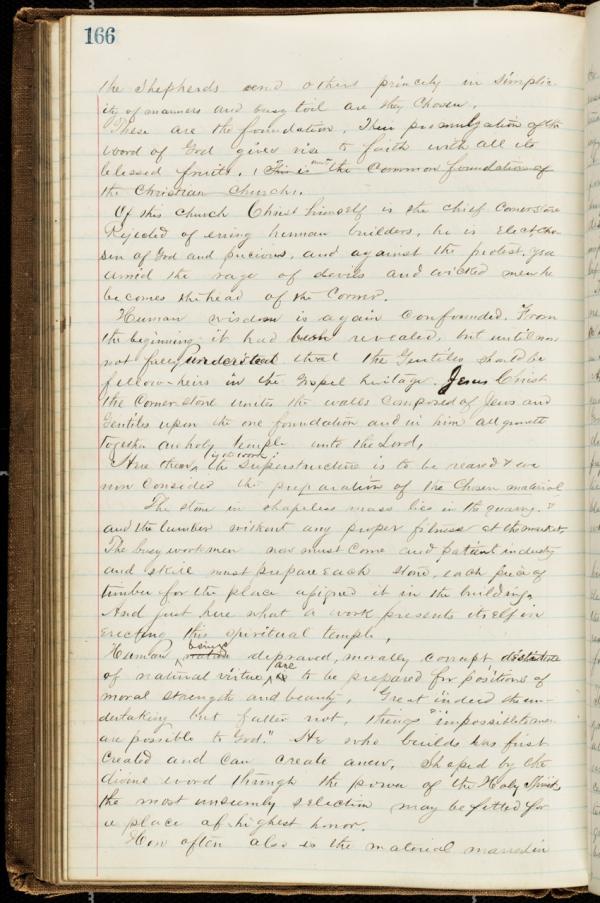 166
the Shepherds and others princely in simplic-
ity of manners and busy toil are they chosen.
These are the foundation. Their promulgation of the
word of God gives rise to faith with all its
blessed fruits. This is the common foundation of
the Christian Church.
Of this church Christ himself is the chief Cornerstone
Rejected of erring human builders, he is elect cho-
sen of God and precious, and against the protest, yea
amid the rage of devils and wicked men he
becomes the head of the Corner.
Human wisdom is again confounded. From
the beginning it had been revealed, but until now
not fully understood that the Gentiles should be
fellowheirs in the Gospel heritage. Jesus Christ
the Cornerstone unites the walls composed of Jews and
Gentiles upon the one foundation and in him all groweth
together an holy temple unto the Lord,
Here then, the superstructure is to be reared & we
now consider the preparation of the Chosen material
The stone in shapeless mass lies in the quarry.
and the lumber without any proper fitness at the market,
The busy workmen now must come and patient industry
and skill must prepare each stone, each piece of
timber for the place assigned it in the building.
And just here what a work presents itself in
erecting this spiritual temple,
Human beings depraved, morally corrupt, destitute
of natural virtue, are to be prepared for positions of
moral strength and beauty. Great indeed the un-
dertaking but falter not, things "impossible to men
are possible to God." He who builds has first
created and can create anew. Shaped by the
divine word through the power of the Holy Spirit,
the most unseemly selection may be fitted for
a place of highest honor.
How often also is the material marred in